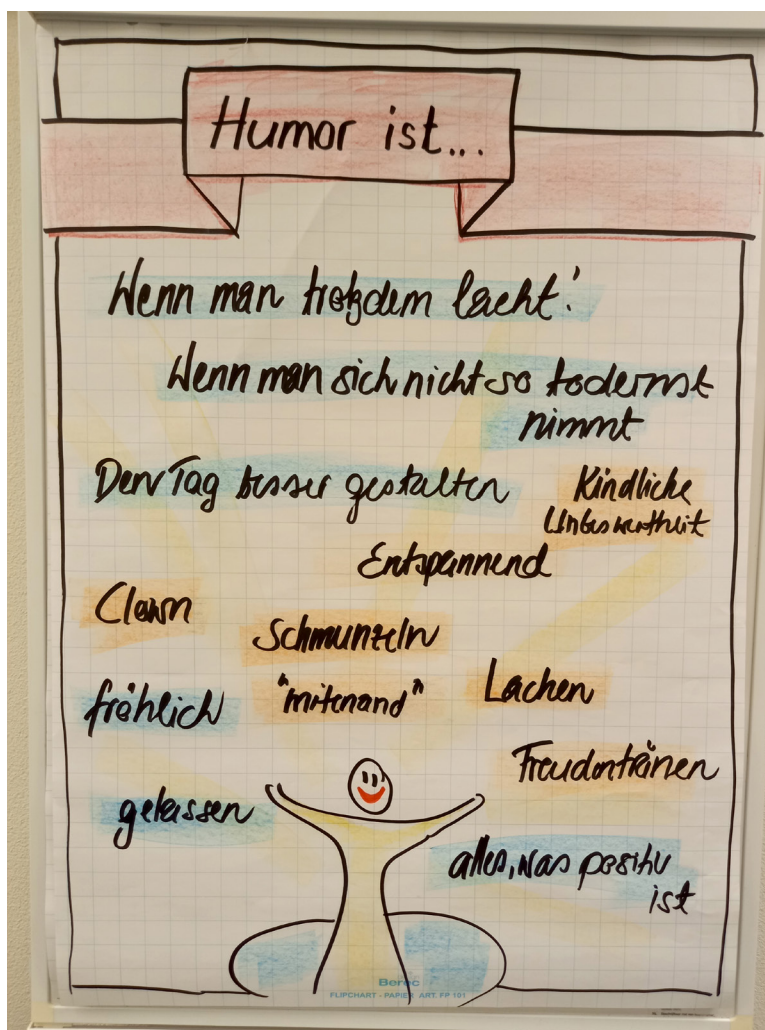 Humor ist...
Wenn man trotzdem lacht!
Wenn man sich nicht so todernst
nimmt
Den Tag besser gestalten
Kindliche
Unbeschwertheit
Entspannend
Clown
Schmunzeln
"mitenand"
Lachen
fröhlich
Freudentränen
gelassen
alles, was positiv
ist
Beroc
FLIPCHART - PAPIER ART. FP 101